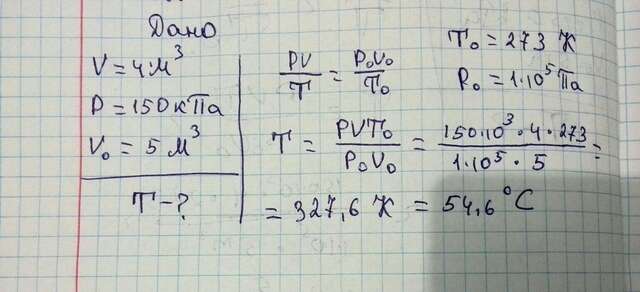 Дано
V = 4 м³
P = 150 кПа
V₀ = 5 м³
T - ?
PV/T = P₀V₀/T₀
T₀ = 273 K
P₀ = 1·10⁵ Па
T = PVT₀/P₀V₀ = 150·10³·4·273/1·10⁵·5 =
= 327,6 K = 54,6°C